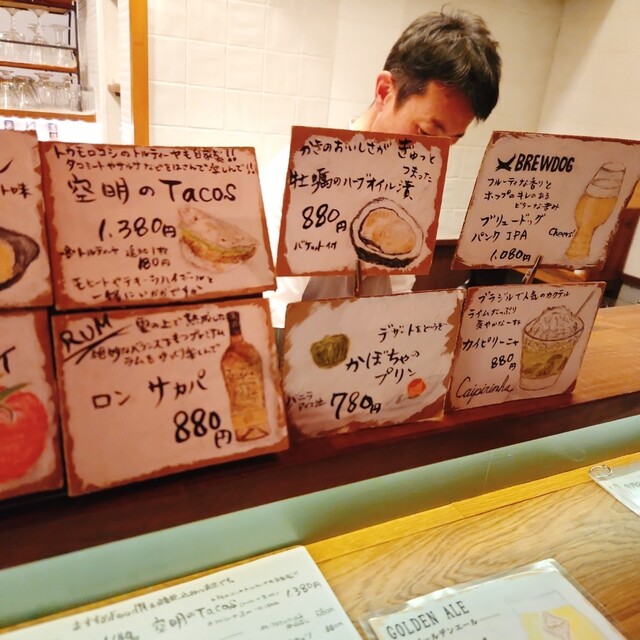 トウモロコシのトルティーヤも自家製!!
空明のTacos
1.380円
追加1枚
180円
モヒートやテキーラハイボールと
一緒にいかがですか
かきのおいしさが ぎゅっと
つまった
牡蠣のハーブオイル漬
880円
バゲット付
BREWDOG
フルーティな香りと
ホップのキレのある
ブリュードッグ
パンク IPA
Cheers!
1.080円
RUM
ロン サカパ
880円
デザートにどうぞ
かぼちゃの
プリン
バニラ
アイス
780円
ブラジルで人気のカクテル
ライムたっぷり
爽やかな一杯
カイピリーニャ
880円
Caipirinha
空明のTacos
1.380円
GOLDEN ALE
ゴールデンエール